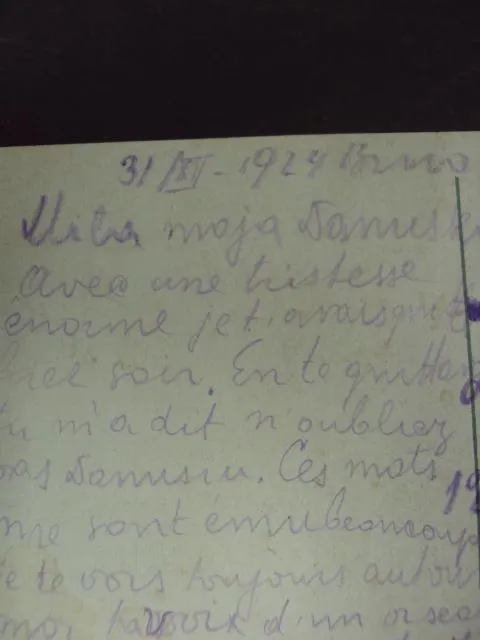 31/XII - 1924 Brno
Mila moja Danusk
Avec une tristesse
énorme je t'avais quitté
hier soir. En te quittan
tu m'a dit n'oubliez
pas Danusiu. Ces mots
19
me sont ému beaucoup
Je te vois toujours autour
moi, ta voix d'un oisea